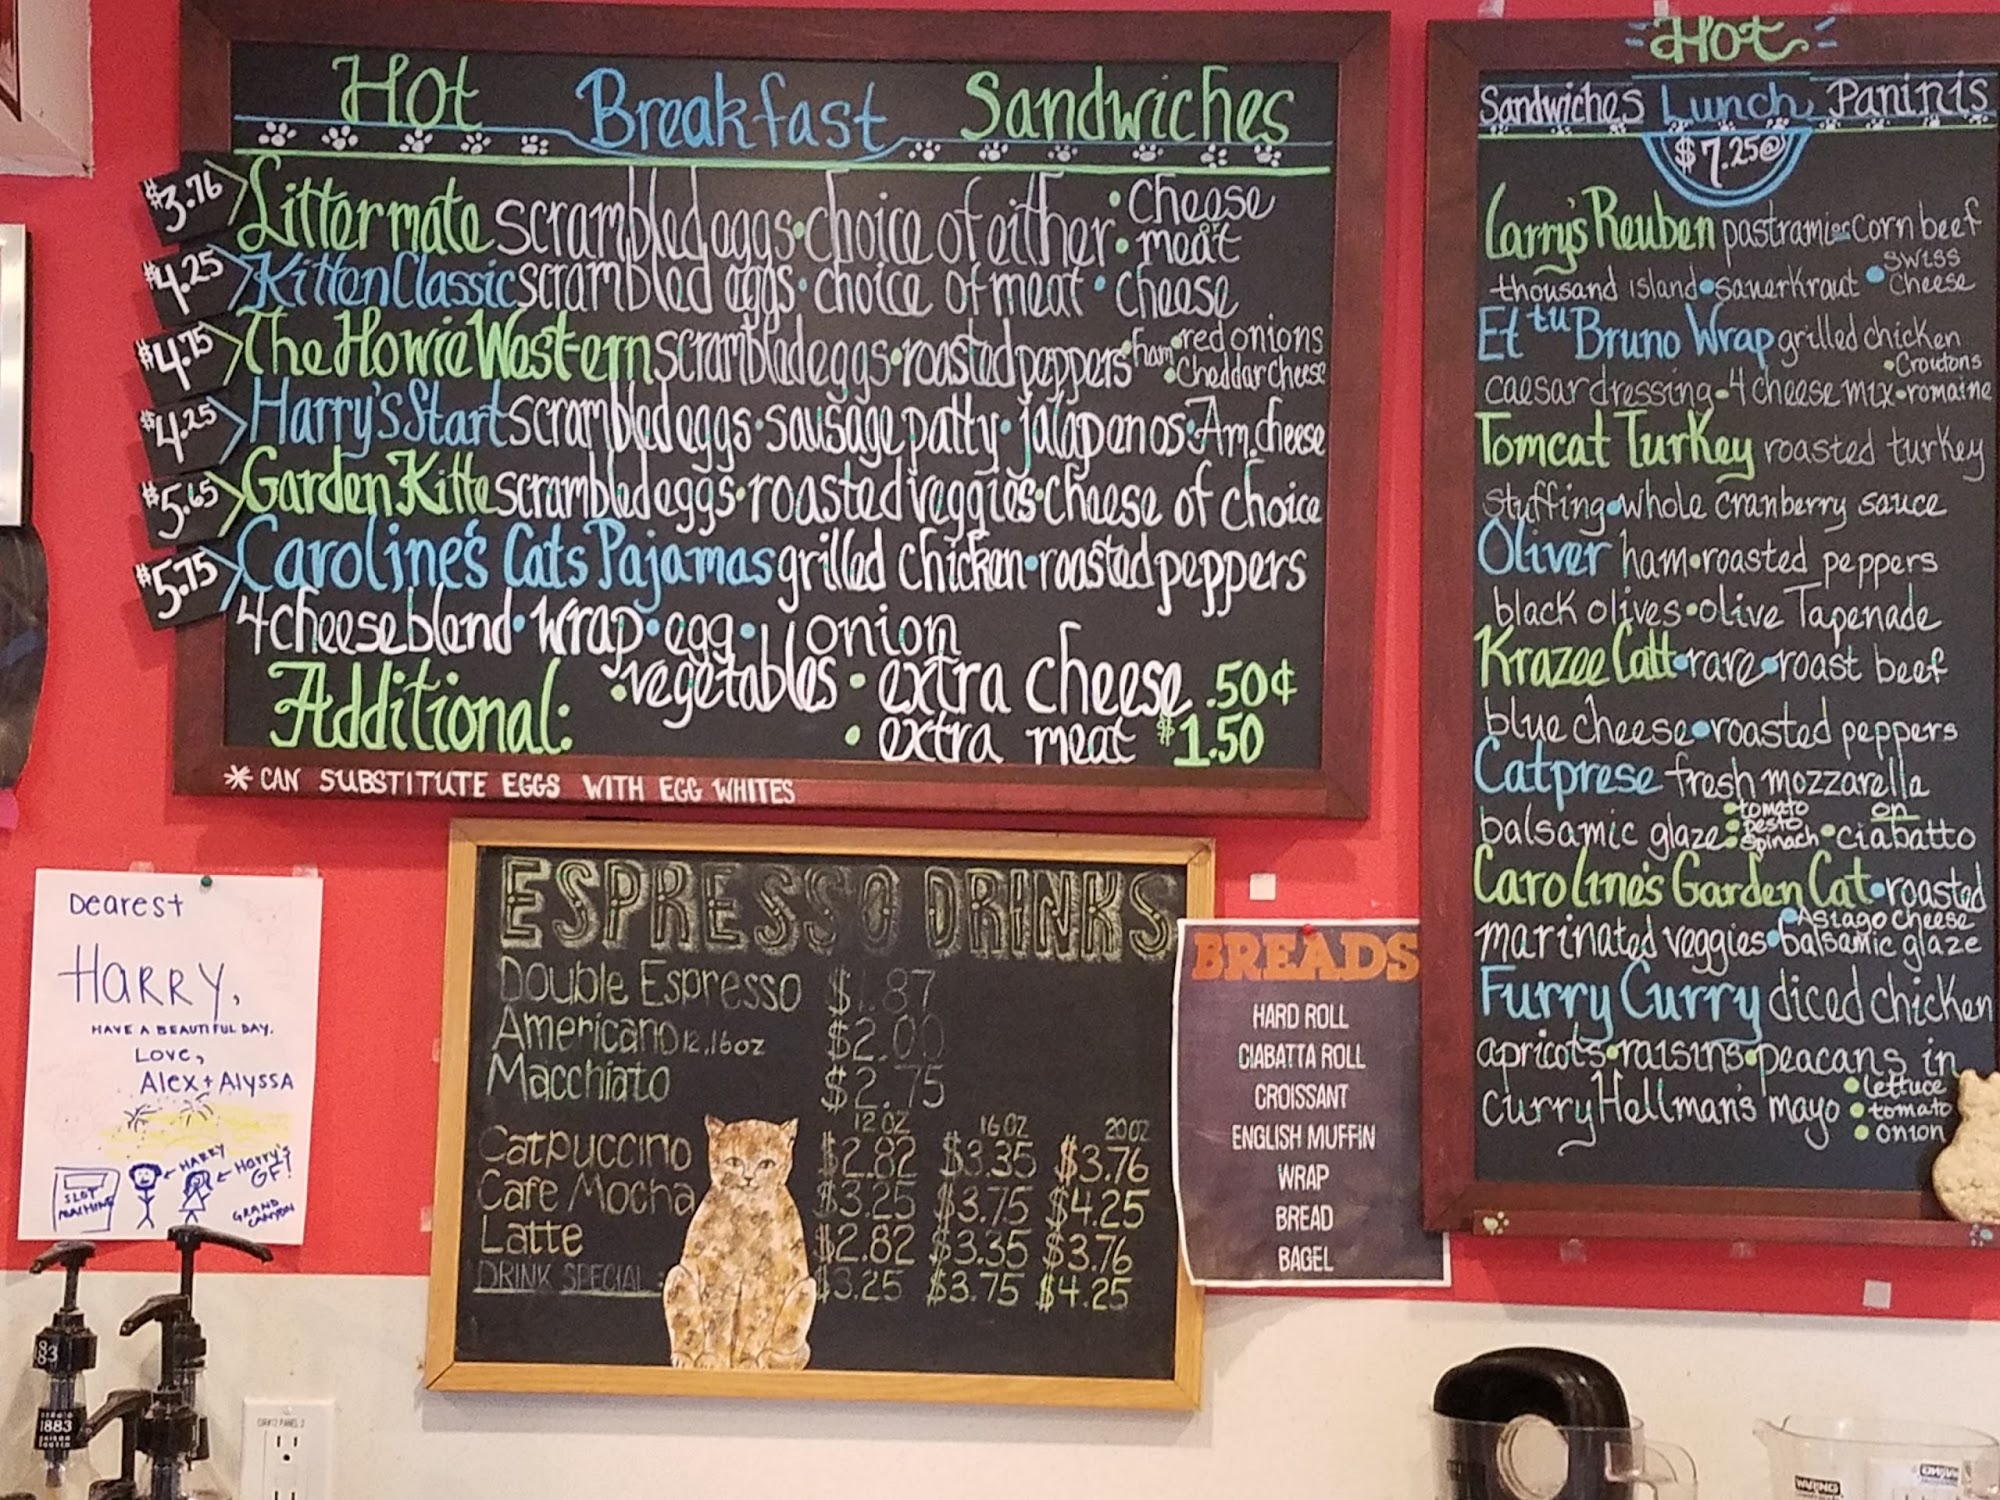 Hot Breakfast Sandwiches
$3.76 Littermate scrambled eggs • choice of either • cheese • meat
$4.25 Kitten Classic scrambled eggs • choice of meat • cheese
$4.75 The Howie Western scrambled eggs • roasted peppers • ham • red onions • Cheddar cheese
$4.25 Harry's Start scrambled eggs • sausage patty • jalapenos • Am. cheese
$5.65 Garden Kitte scrambled eggs • roasted veggies • cheese of choice
$5.75 Caroline's Cats Pajamas grilled chicken • roasted peppers
4 cheese blend • wrap • egg • onion
Additional: • vegetables • extra cheese .50¢
• extra meat $1.50
* CAN SUBSTITUTE EGGS WITH EGG WHITES
Hot
Sandwiches Lunch Paninis
$7.25@
Larry's Reuben pastrami or corn beef
thousand island • sauerkraut • swiss cheese
Et tu Bruno Wrap grilled chicken
caesar dressing • 4 cheese mix • Croutons • romaine
Tomcat Turkey roasted turkey
stuffing • whole cranberry sauce
Oliver ham • roasted peppers
black olives • olive Tapenade
Krazee Catt • rare • roast beef
blue cheese • roasted peppers
Catprese fresh mozzarella
balsamic glaze • tomato • pesto • spinach • on ciabatto
Caroline's Garden Cat • roasted
marinated veggies • Asiago cheese • balsamic glaze
Furry Curry diced chicken
apricots • raisins • peacans in
curry Hellman's mayo • lettuce • tomato • onion
ESPRESSO DRINKS
Double Espresso $1.87
Americano 12, 16oz $2.00
Macchiato $2.75
12 oz 16 oz 20 oz
Catpuccino $2.82 $3.35 $3.76
Cafe Mocha $3.25 $3.75 $4.25
Latte $2.82 $3.35 $3.76
DRINK SPECIAL: $3.25 $3.75 $4.25
BREADS
HARD ROLL
CIABATTA ROLL
CROISSANT
ENGLISH MUFFIN
WRAP
BREAD
BAGEL
Dearest
HARRY,
HAVE A BEAUTIFUL DAY.
LOVE,
Alex + Alyssa
SLOT MACHINE
HARRY
Harry's GF!
GRAND CANYON
83
1883
WARING